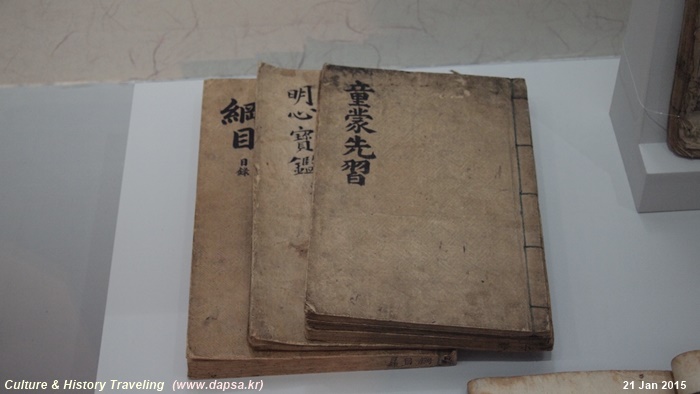 童蒙先習
明心寶鑑
綱目
目錄
Culture & History Traveling (www.dapsa.kr)
21 Jan 2015